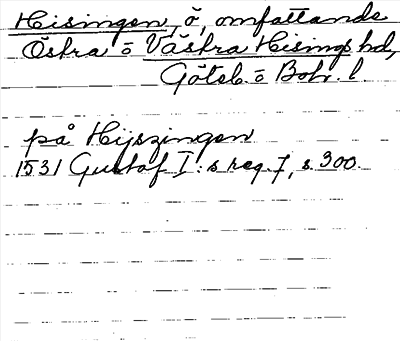 Hisingen, ö, omfattande
Östra o Västra Hisings hd,
Göteb. o Boh. l.
på Hijszingen
1531 Gustaf I:s reg. 7, s. 300.